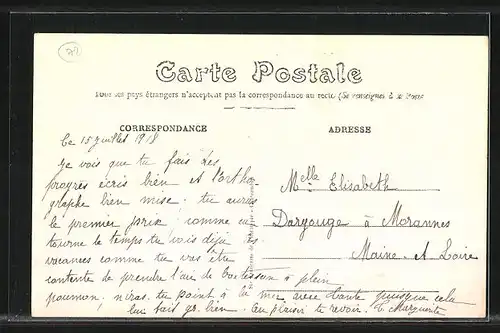 72
Carte Postale
Tous les pays étrangers n'acceptent pas la correspondance au recto (Se renseigner à la Poste
CORRESPONDANCE
ADRESSE
Le 15 juillet 1918
Je vois que tu fais des
progrès écris bien et l'ortho
graphe bien mise. tu auras
le premier prix, comme
tourne le temps tu vois déjà les
vacances comme tu vas être
contente de prendre l'air de à plein
poumon, n'iras tu point à la mer avec tante puisque cela
lui fait gr. bien. Au plaisir te revoir. Marguerite
Melle Elisabeth
Daryouge à Morannes
Maine et Loire